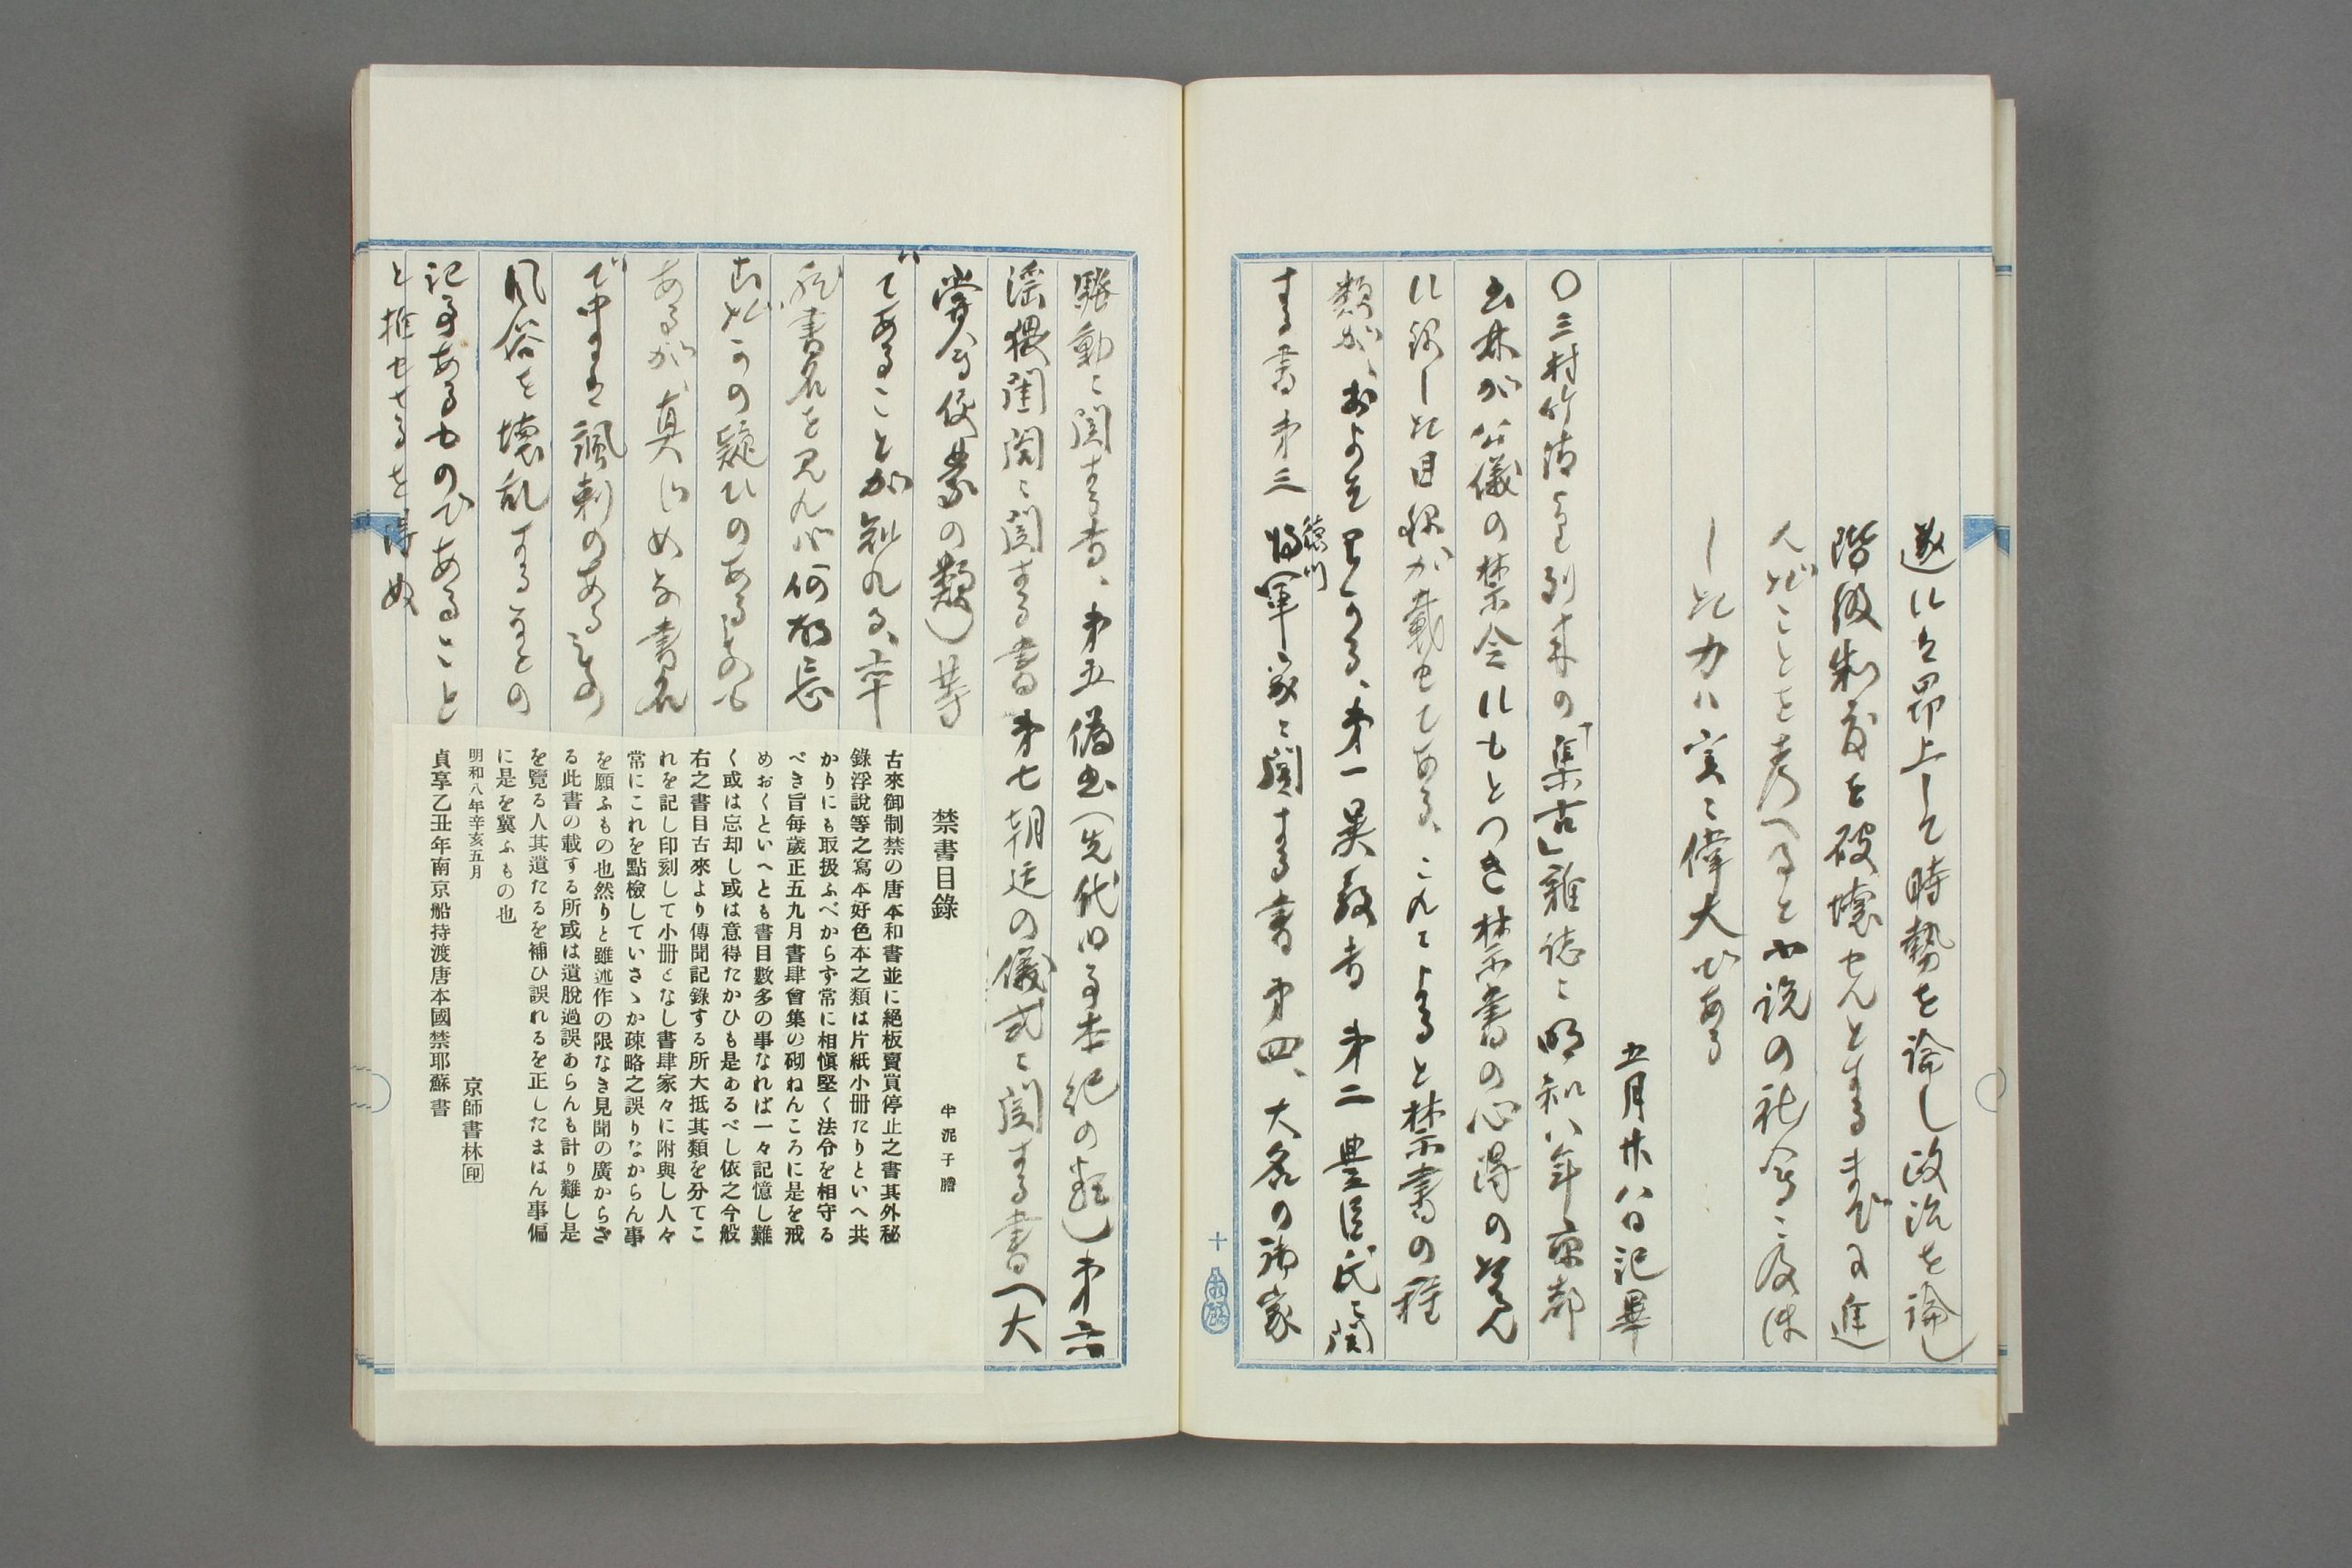 遂には昂上して時勢を論し政治を論し
階級制度を破壊せんとするまでに進
んだことを考へると小説の社会に及ほ
した力は実に偉大である
五月廿八日記畢
〇三村竹清より到来の「集古」雑誌に明和八年京都
書林が公儀の禁令にもとつき禁書の心得の為め
に録した目録が載せてある、これによると禁書の種
類が、およそわかる、第一異教書 第二豊臣氏に関
する書 第三 徳川将軍家に関する書 第四、大名の諸家
騒動に関する書、第五偽書(先代旧事本紀の類)第六
淫猥閨閤に関する書 第七朝廷の儀式に関する書(大
嘗会便蒙の類)等
であることが知れる、
書名を見れば何
疑ひのある
あるが真じめな書名
で中には諷刺のあるもの
風俗を壊乱するなどの
記事あるものであること
と推せさるを得ぬ
禁書目錄
半泥子謄
古來御制禁の唐本和書並に絕板賣買停止之書其外秘
錄浮說等之寫本好色本之類は片紙小冊たりといへ共
かりにも取扱ふべからず常に相愼堅く法令を相守る
べき旨每歲正五九月書肆會集の砌ねんころに是を戒
めおくといへとも書目數多の事なれば一々記憶し難
く或は忘却し或は意得たかひも是あるべし依之今般
右之書目古來より傳聞記錄する所大抵其類を分てこ
れを記し印刻して小冊となし書肆家々に附與し人々
常にこれを點檢していさゝか疎略之誤りなからん事
を願ふもの也然りと雖述作の限なき見聞の廣からざ
る此書の載する所或は遺脫過誤あらんも計り難し是
を覽る人其遺たるを補ひ誤れるを正したまはん事偏
に是を冀ふもの也
明和八年辛亥五月
京師書林印
貞享乙丑年南京船持渡唐本國禁耶蘇書
十